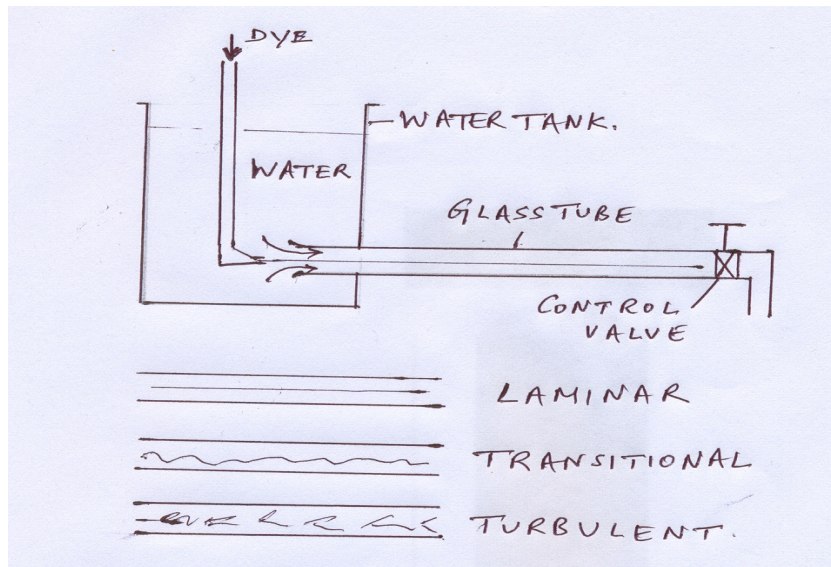 DYE
WATER TANK.
WATER
GLASS TUBE
CONTROL
VALVE
LAMINAR
TRANSITIONAL
TURBULENT.